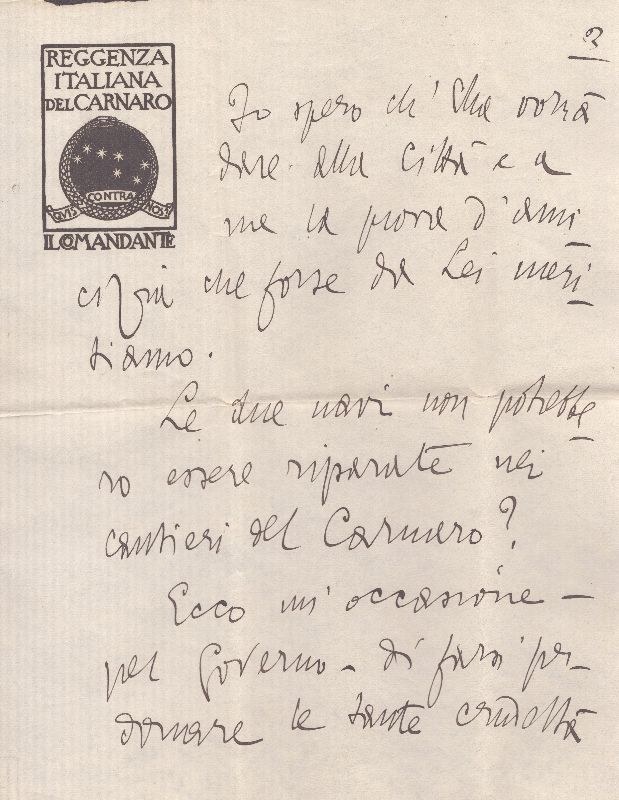 2
REGGENZA
ITALIANA
DEL CARNARO
QUIS CONTRA NOS?
IL COMANDANTE
Io spero ch'Ella vorrà
dare alla Città e a
me la prova d'ami
cizia che forse da Lei meri
tiamo.
Le due navi non potrebbe
ro essere riparate nei
cantieri del Carnaro?
Ecco un'occasione –
pel Governo – di farsi per–
donare le tante crudeltà